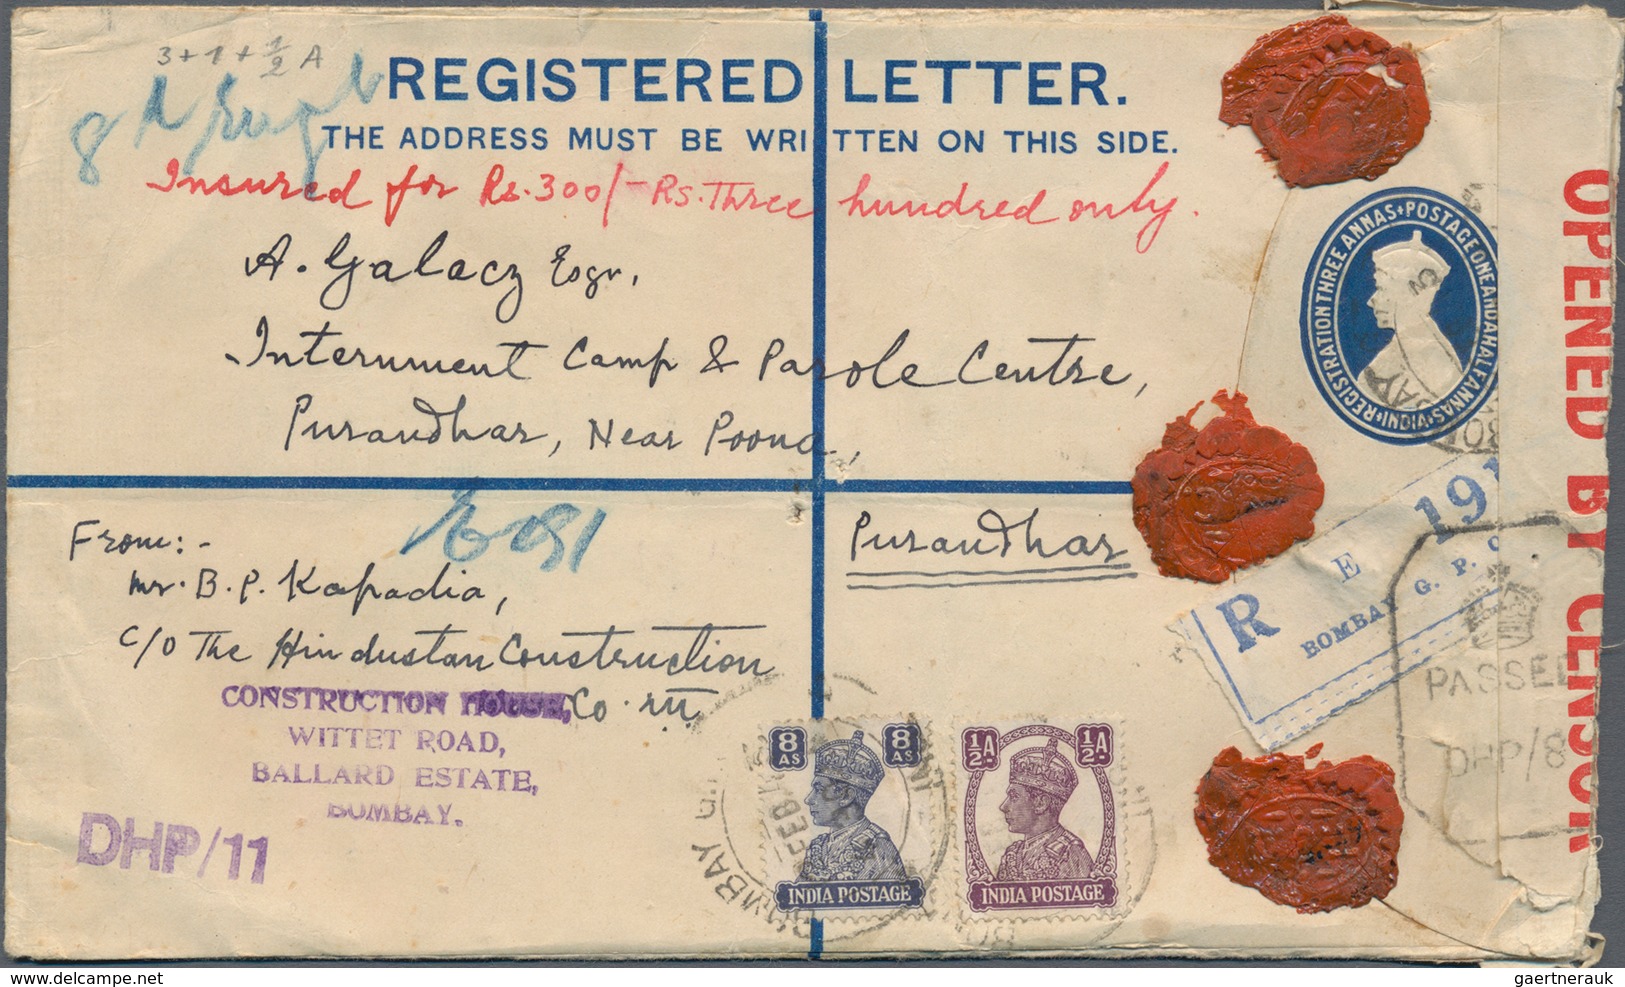 3+1+½ A
REGISTERED LETTER.
THE ADDRESS MUST BE WRITTEN ON THIS SIDE.
Insured for Rs. 300/- Rs. Three hundred only.
A. Galacz Esqr,
Internment Camp & Parole Centre,
Purandhar, Near Poona,
Purandhar
From:-
Mr. B. P. Kapadia,
C/O The Hindustan Construction
Co.
CONSTRUCTION HOUSE,
WITTET ROAD,
BALLARD ESTATE,
BOMBAY.
DHP/11
REGISTRATION THREE ANNAS + POSTAGE ONE AND A HALF ANNAS
INDIA
OPENED BY CENSOR
R E 19
BOMBAY G. P.
PASSED
DHP/8
8 AS 8 AS
INDIA POSTAGE
½A ½A
INDIA POSTAGE
BOMBAY G.
FEB
delcampe.net
gaertnerauk